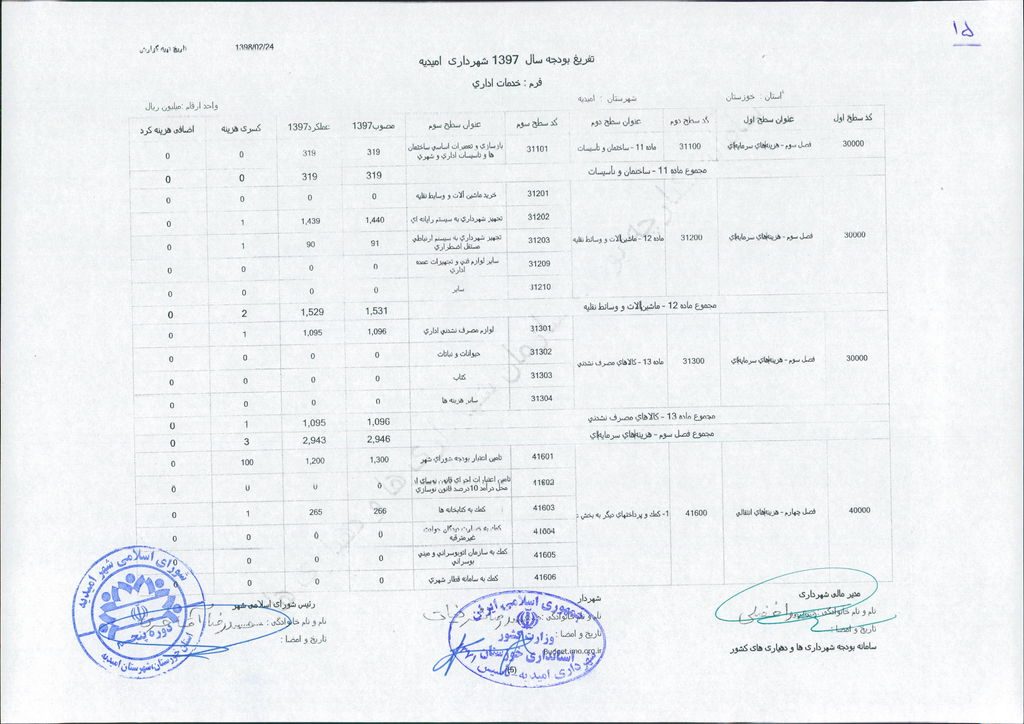 ۱۵
تاریخ تهیه گزارش 1398/02/24
تفریغ بودجه سال 1397 شهرداری امیدیه
فرم : خدمات اداری
استان : خوزستان شهرستان : امیدیه
واحد ارقام :میلیون ریال
کد سطح اول عنوان سطح اول کد سطح دوم عنوان سطح دوم کد سطح سوم عنوان سطح سوم مصوب1397 عملکرد1397 کسری هزینه اضافی هزینه کرد
30000 فصل سوم - هزینه‌های سرمایه‌ای 31100 ماده 11 - ساختمان و تأسیسات 31101 بازسازی و تعمیرات اساسی ساختمان ها و تاسیسات اداری و شهری 319 319 0 0
مجموع ماده 11 - ساختمان و تأسیسات 319 319 0 0
30000 فصل سوم - هزینه‌های سرمایه‌ای 31200 ماده 12 - ماشین‌آلات و وسائط نقلیه
31201 خرید ماشین آلات و وسایط نقلیه 0 0 0 0
31202 تجهیز شهرداری به سیستم رایانه ای 1,440 1,439 1 0
31203 تجهیز شهرداری به سیستم ارتباطی مستقل اضطراری 91 90 1 0
31209 سایر لوازم فنی و تجهیزات عمده اداری 0 0 0 0
31210 سایر 0 0 0 0
مجموع ماده 12 - ماشین‌آلات و وسائط نقلیه 1,531 1,529 2 0
30000 فصل سوم - هزینه‌های سرمایه‌ای 31300 ماده 13 - کالاهای مصرف نشدنی
31301 لوازم مصرف نشدنی اداری 1,096 1,095 1 0
31302 حیوانات و نباتات 0 0 0 0
31303 کتاب 0 0 0 0
31304 سایر هزینه ها 0 0 0 0
مجموع ماده 13 - کالاهای مصرف نشدنی 1,096 1,095 1 0
مجموع فصل سوم - هزینه‌های سرمایه‌ای 2,946 2,943 3 0
40000 فصل چهارم - هزینه‌های انتقالی 41600 1- کمک و پرداختهای دیگر به بخش
41601 تامین اعتبار بودجه شورای شهر 1,300 1,200 100 0
41602 تامین اعتبارات اجرای قانون نوسازی از محل درآمد 10درصد قانون نوسازی 0 0 0 0
41603 کمک به کتابخانه ها 266 265 1 0
41604 کمک به خسارت دیدگان حوادث غیرمترقبه 0 0 0 0
41605 کمک به سازمان اتوبوسرانی و مینی بوسرانی 0 0 0 0
41606 کمک به سامانه قطار شهری 0 0 0 0
مدیر مالی شهرداری
نام و نام خانوادگی :
تاریخ و امضا :
سامانه بودجه شهرداری ها و دهیاری های کشور
شهردار
نام و نام خانوادگی :
تاریخ و امضا :
budget.imo.org.ir
(6)
جمهوری اسلامی ایران
وزارت کشور
استانداری خوزستان
شهرداری امیدیه
رئیس شورای اسلامی شهر
نام و نام خانوادگی :
تاریخ و امضا :
شورای اسلامی شهر امیدیه
دوره پنجم
استان خوزستان،شهرستان امیدیه